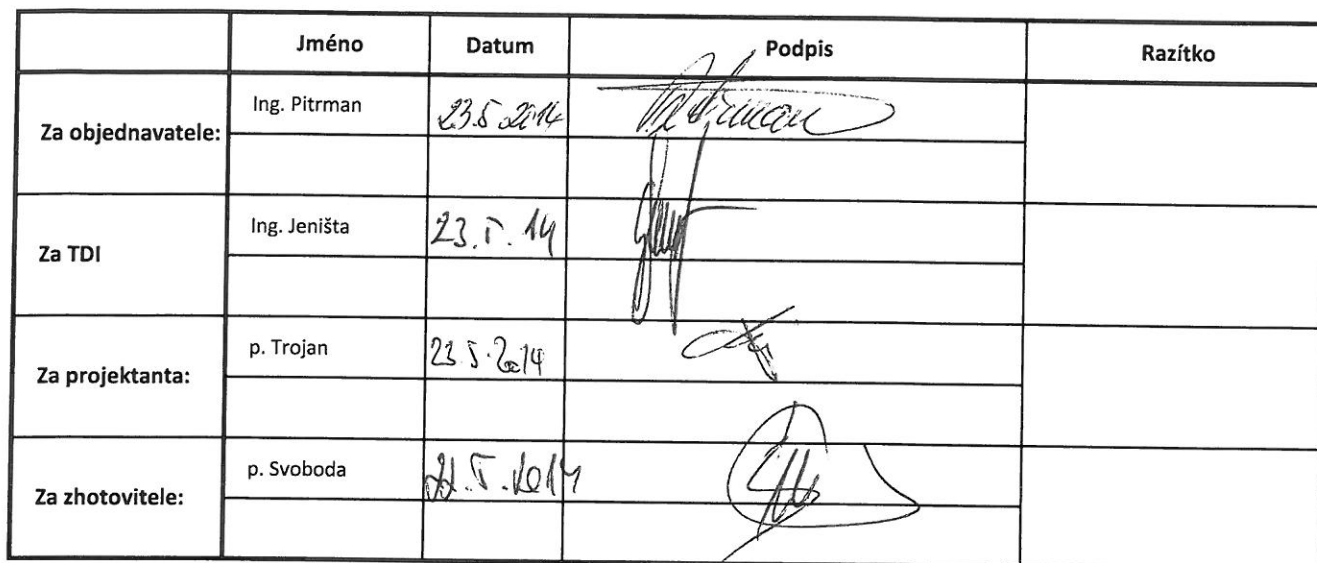 Jméno Datum Podpis Razítko
Za objednavatele: Ing. Pitrman 23.5.2014
Za TDI Ing. Jeništa 23.5.14
Za projektanta: p. Trojan 23.5.2014
Za zhotovitele: p. Svoboda